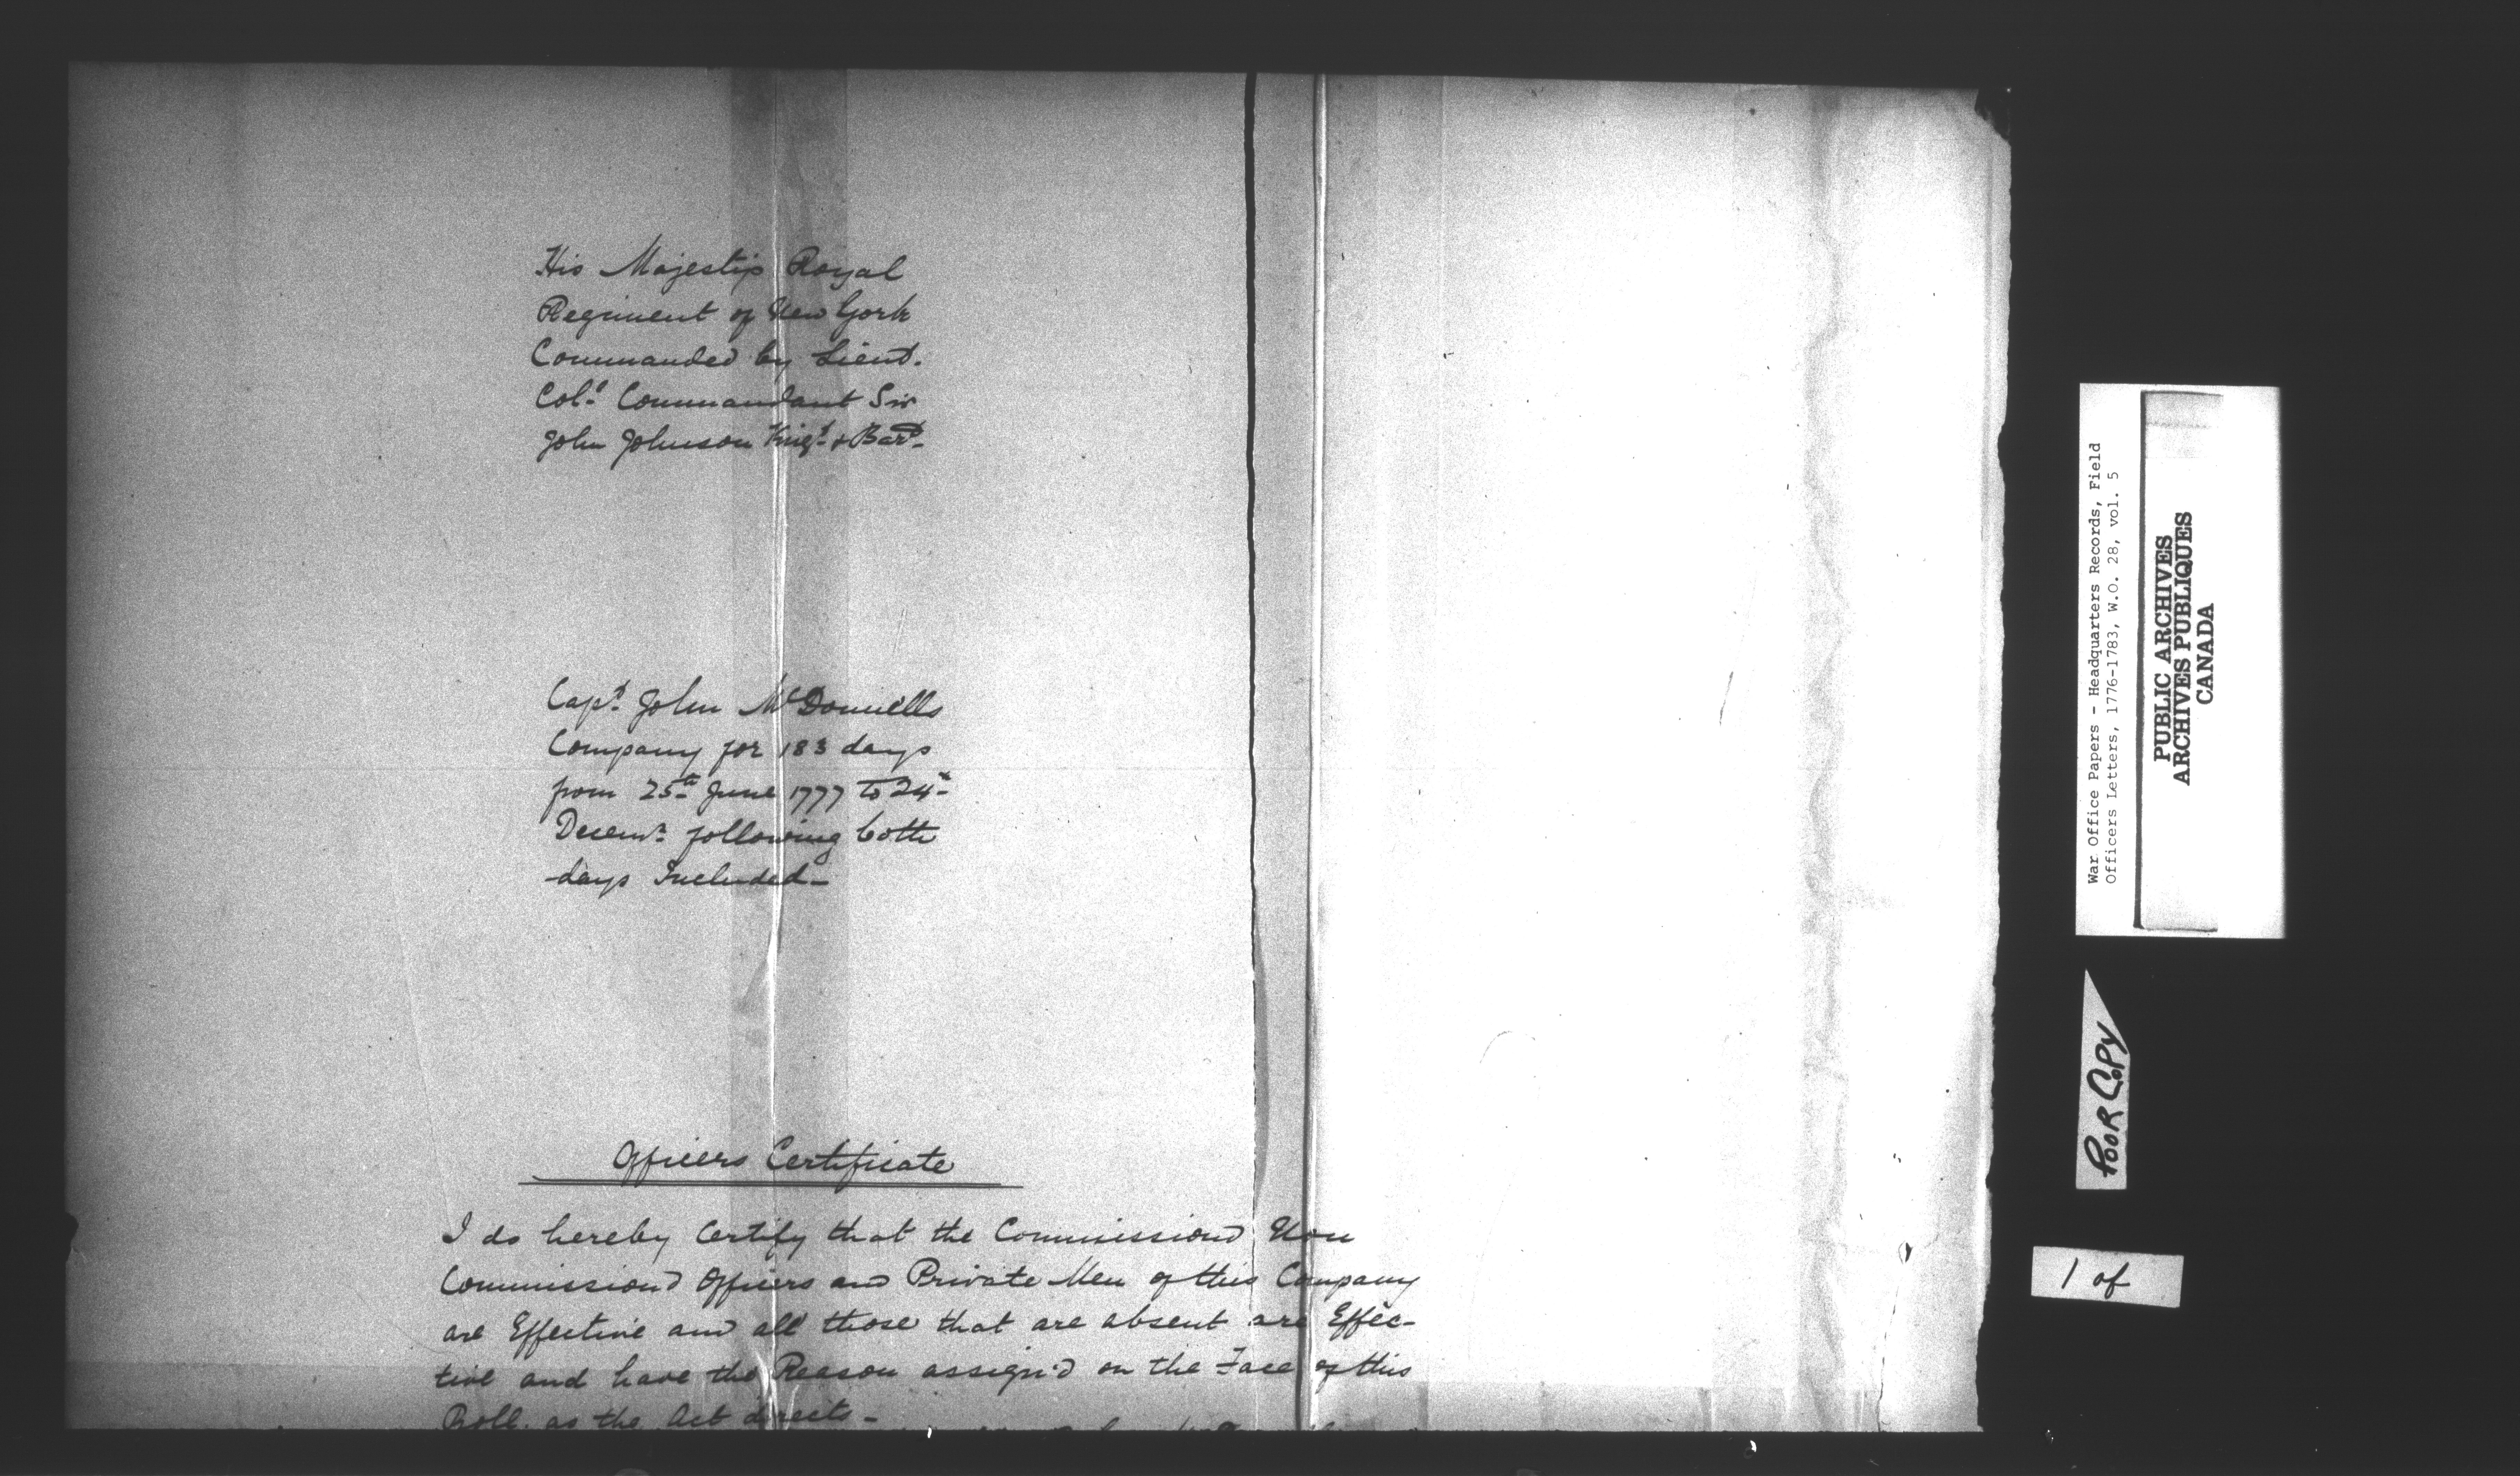 His Majestys Royal
Regiment of New York
Commanded by Lieut.
Col.l Commandant Sir
John Johnson Knigt. & Bart.
Capt. John McDonnells
Company for 183 days
from 25th June 1777 to 24th
Decemr. following both
days Included-
Officers Certificate
I do hereby Certify that the Commissiond Non
Commissiond Officers and Private Men of this Company
are Effective and all those that are absent are Effec-
tive and have the Reason assign'd on the Face of this
Roll. as the Act directs-
War Office Papers - Headquarters Records, Field
Officers Letters, 1776-1783, W.O. 28, vol. 5
PUBLIC ARCHIVES
ARCHIVES PUBLIQUES
CANADA
POOR COPY
1 of